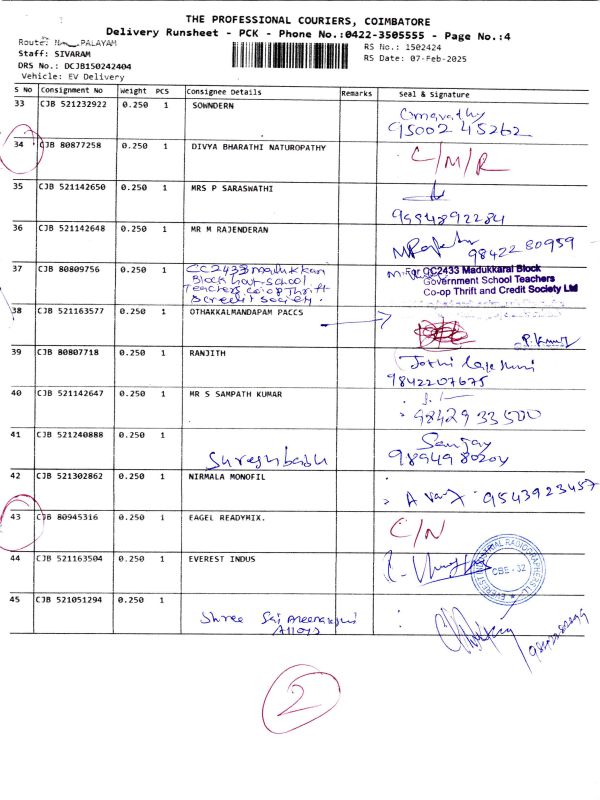 THE PROFESSIONAL COURIERS, COIMBATORE
Delivery Runsheet - PCK - Phone No.:0422-3505555 - Page No.:4
Route: PALAYAM
RS No.: 1502424
Staff: SIVARAM
RS Date: 07-Feb-2025
DRS No.: DCJB150242404
Vehicle: EV Delivery
S No Consignment No Weight PCS Consignee Details Remarks Seal & Signature
33 CJB 521232922 0.250 1 SOWNDERN
95002 45262
34 CJB 80877258 0.250 1 DIVYA BHARATHI NATUROPATHY C/M/R
35 CJB 521142650 0.250 1 MRS P SARASWATHI
9994892284
36 CJB 521142648 0.250 1 MR M RAJENDERAN
98422 80959
37 CJB 80809756 0.250 1 CC2433 Madukkarai
Block Govt. School
Teachers Co-op Thrift
& credit society.
For CC2433 Madukkarai Block
Government School Teachers
Co-op Thrift and Credit Society Ltd
38 CJB 521163577 0.250 1 OTHAKKALMANDAPAM PACCS
P. Kumar
39 CJB 80807718 0.250 1 RANJITH
9842207675
40 CJB 521142647 0.250 1 MR S SAMPATH KUMAR
98429 33500
41 CJB 521240888 0.250 1 Sureshbabu
Sanjay
9894980204
42 CJB 521302862 0.250 1 NIRMALA MONOFIL
9543923457
43 CJB 80945316 0.250 1 EAGEL READYMIX. C/N
44 CJB 521163504 0.250 1 EVEREST INDUS
CBE - 32
45 CJB 521051294 0.250 1 Shree Sai Meenakshi
Alloys
2